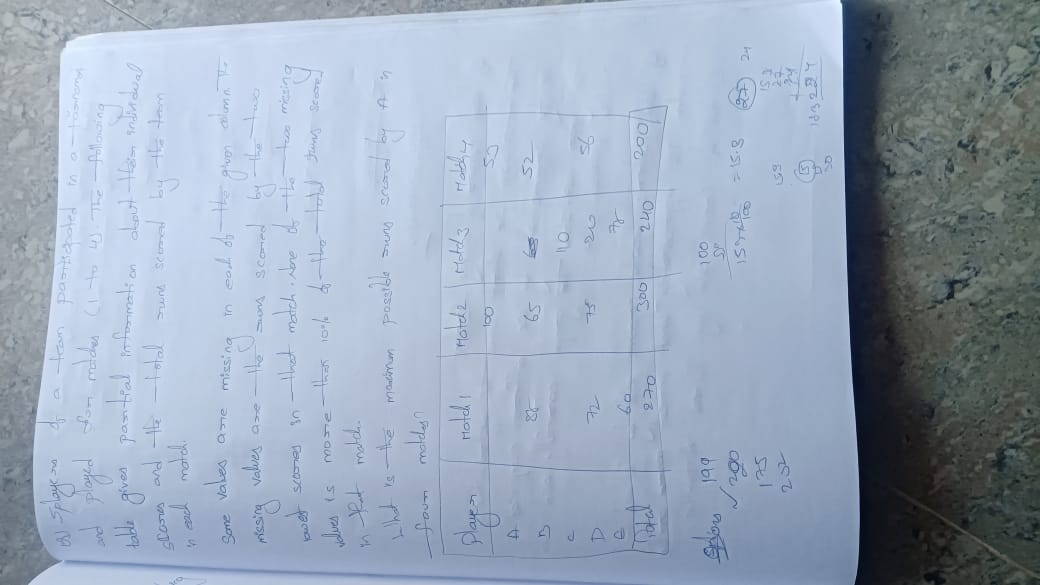 Q) 5 players of a team participated in a tournament
and played four matches (1 to 4). The following
table gives partial information about their individual
scores and the total runs scored by the team
in each match.
Some values are missing in each of the given column. The
missing values are the runs scored by the two
lowest scorers in that match. None of the two missing
values is more than 10% of the total runs scored
in that match.
What is the maximum possible runs scored by A in
four matches
Player Match 1 Match 2 Match 3 Match 4
A 100 53
B 88 65 52
C 110
D 72 75 20 56
E 60 78
Total 270 300 240 200
Options 199
✓ 200
175
202
100
53
= 15.3
27
24
15.3
27
24
159
15
30